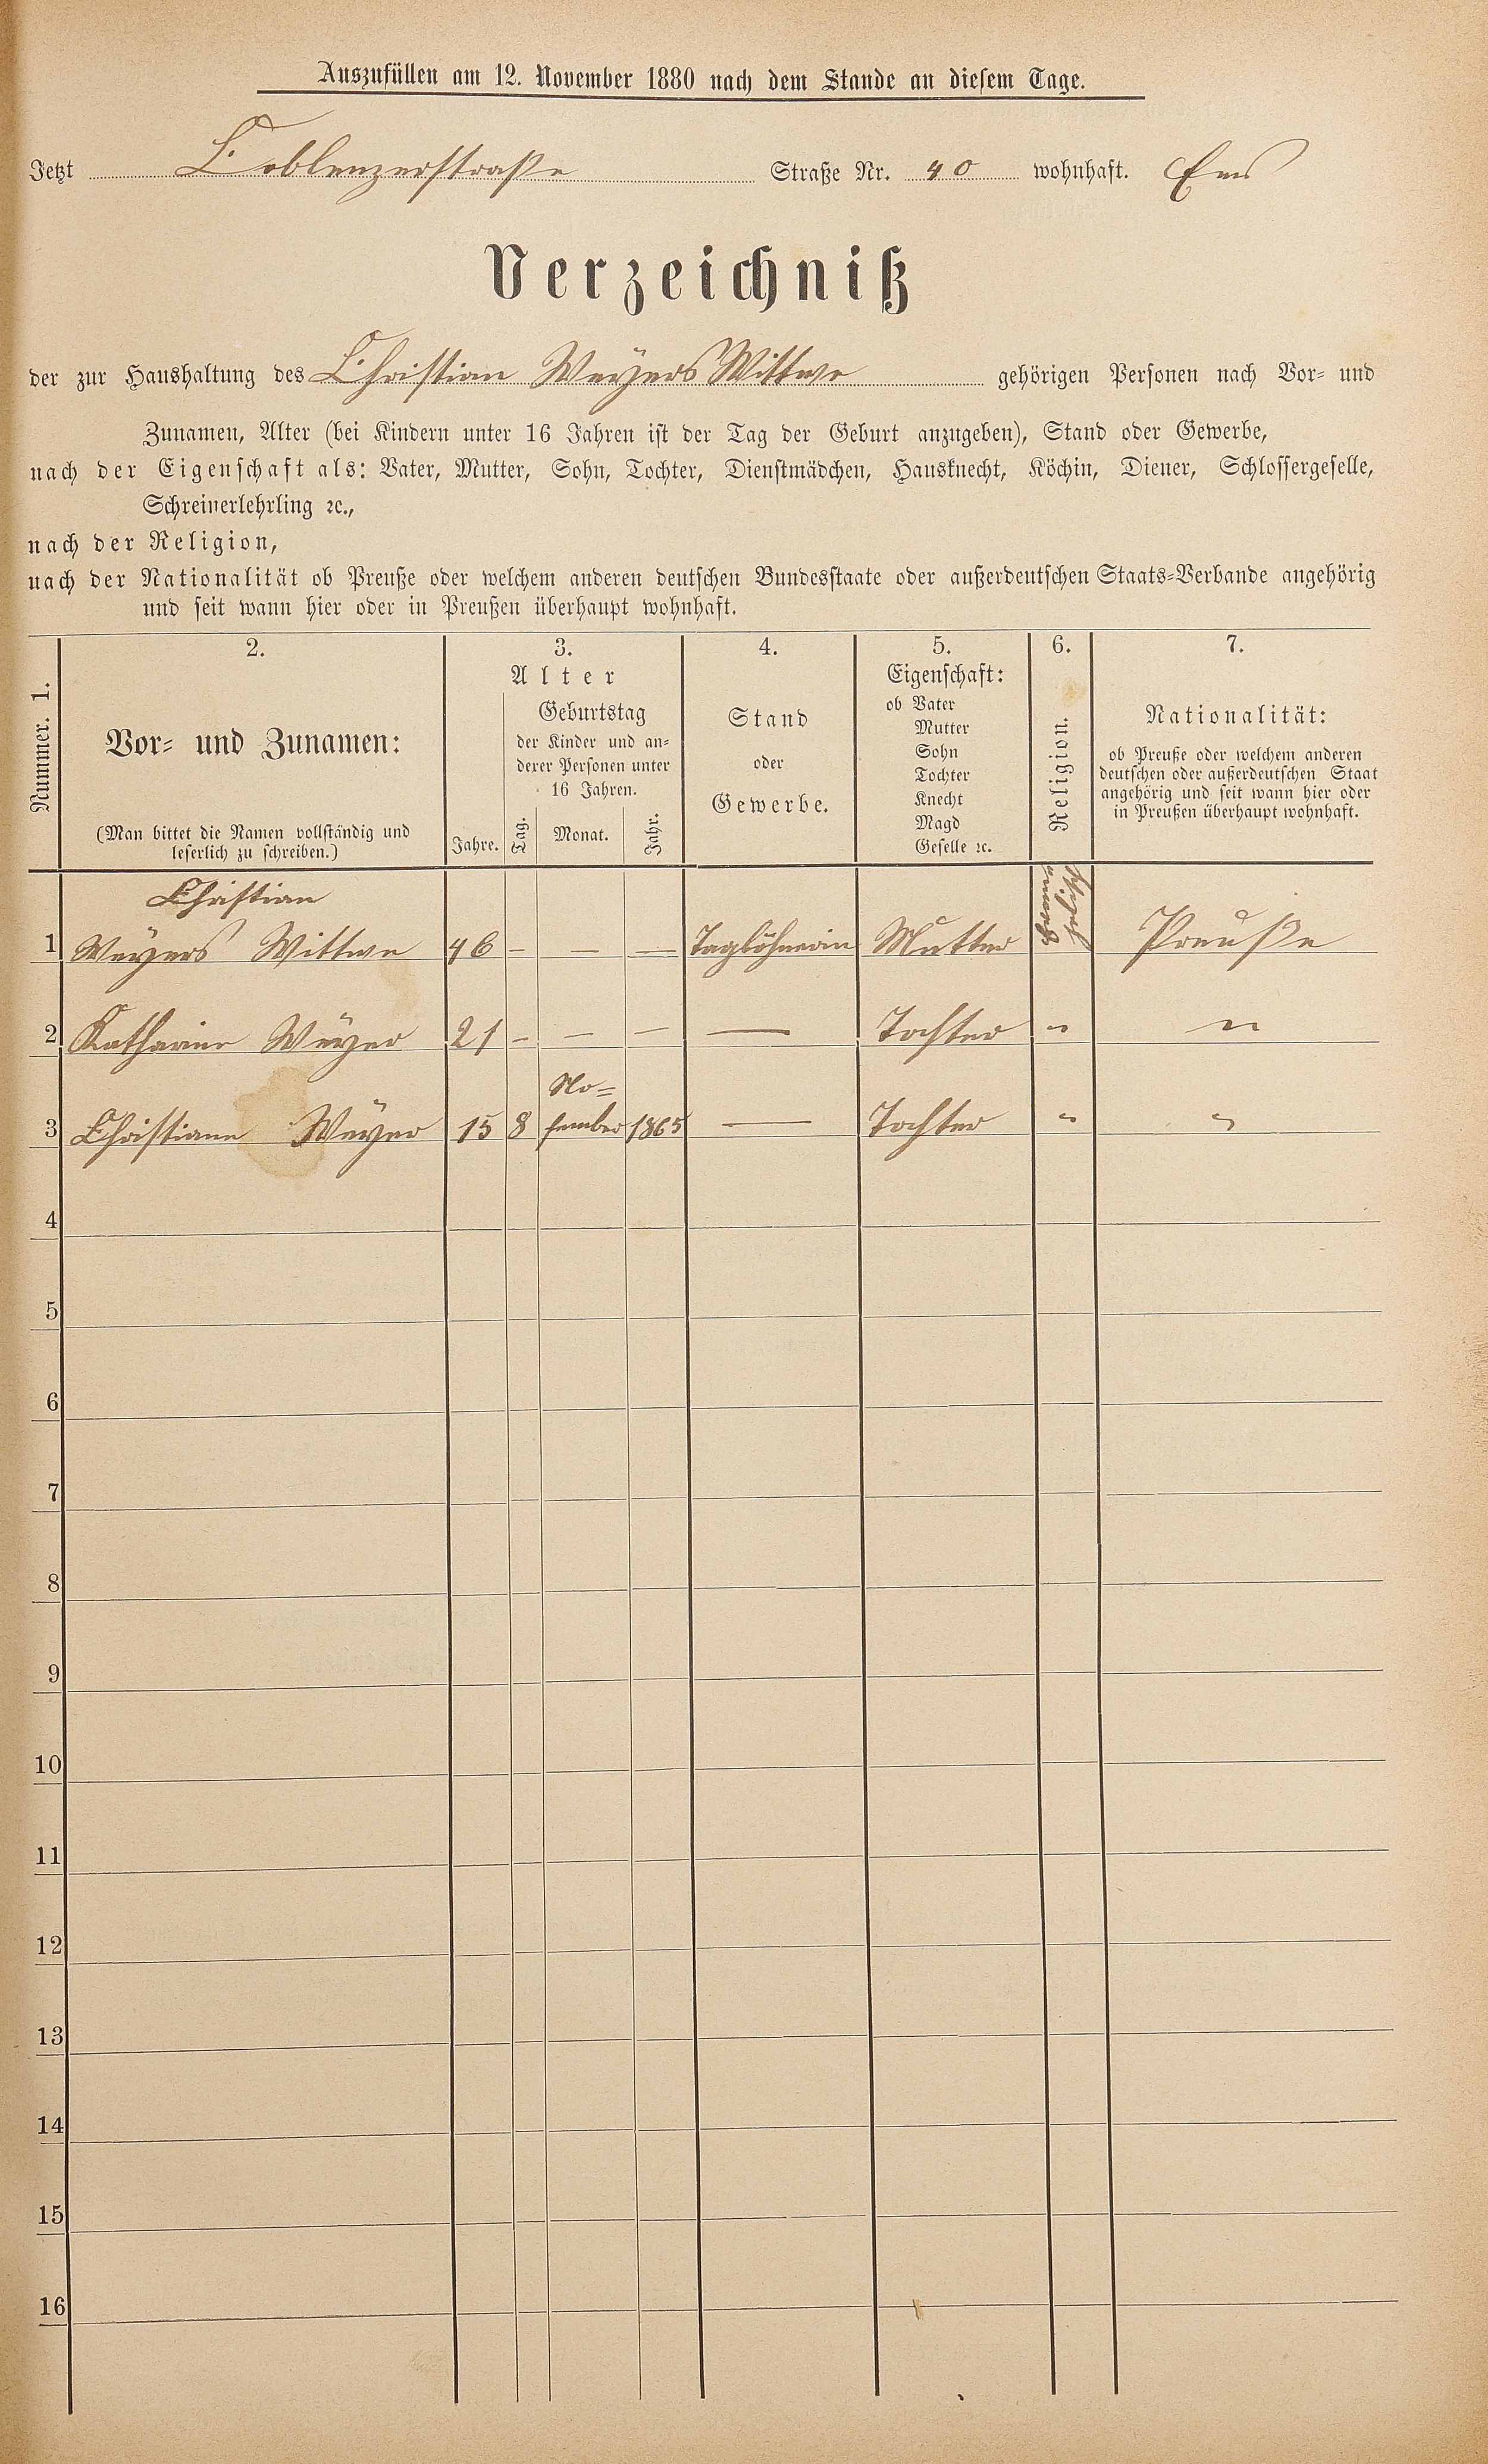 Auszufüllen am 12. November 1880 nach dem Stande an diesem Tage.
Jetzt Coblenzerstraße Straße Nr. 40 wohnhaft. Ems
Verzeichniß
der zur Haushaltung des Christian Weyers Wittwe gehörigen Personen nach Vor- und
Zunamen, Alter (bei Kindern unter 16 Jahren ist der Tag der Geburt anzugeben), Stand oder Gewerbe,
nach der Eigenschaft als: Vater, Mutter, Sohn, Tochter, Dienstmädchen, Hausknecht, Köchin, Diener, Schlossergeselle,
Schreinerlehrling ꝛc.,
nach der Religion,
nach der Nationalität ob Preuße oder welchem anderen deutschen Bundesstaate oder außerdeutschen Staats-Verbande angehörig
und seit wann hier oder in Preußen überhaupt wohnhaft.
Nummer. 1.
2.
Vor- und Zunamen:
(Man bittet die Namen vollständig und
leserlich zu schreiben.)
3.
Alter
Jahre.
Geburtstag
der Kinder und an-
derer Personen unter
16 Jahren.
Tag. Monat. Jahr.
4.
Stand
oder
Gewerbe.
5.
Eigenschaft:
ob Vater
Mutter
Sohn
Tochter
Knecht
Magd
Geselle ꝛc.
6.
Religion.
7.
Nationalität:
ob Preuße oder welchem anderen
deutschen oder außerdeutschen Staat
angehörig und seit wann hier oder
in Preußen überhaupt wohnhaft.
Christian
1 Weyers Wittwe 46 – – – Taglöhnerin Mutter Preuße
2 Katharine Weÿer 21 – – – — Tochter " "
No=
3 Christiane Weÿer 15 8 fember 1865 — Tochter " "
4
5
6
7
8
9
10
11
12
13
14
15
16